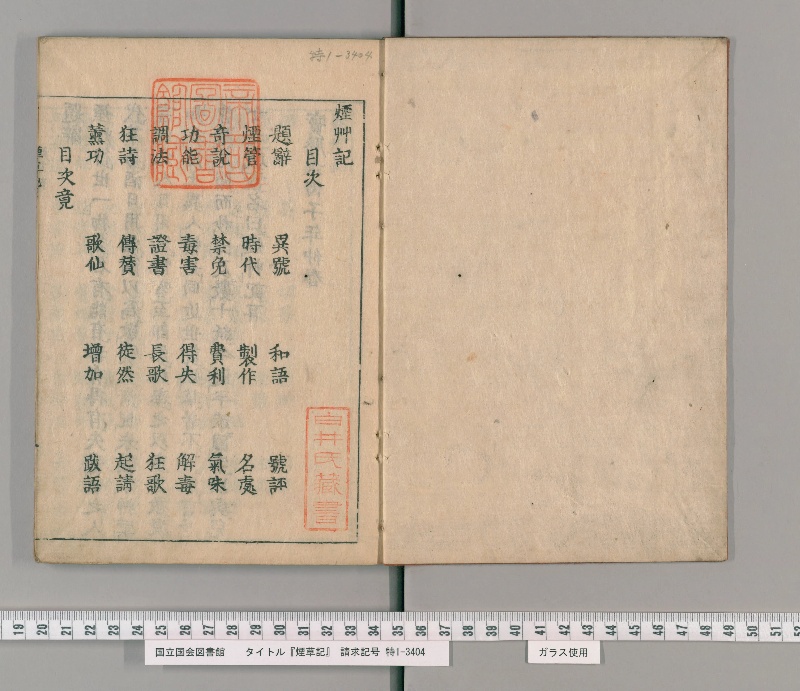 特1-3404
煙艸記
目次
題辭 異號 和語 號評
煙管 時代 製作 名處
奇説 禁免 費利 氣味
功能 毒害 得失 解毒
調法 證書 長歌 狂歌
狂詩 傳賛 徒然 起請
薫功 歌仙 增加 跋語
目次竟
白井氏藏書
19 20 21 22 23 24 25 26 27 28 29 30 31 32 33 34 35 36 37 38 39 40 41 42 43 44 45 46 47 48 49 50 51 52
国立国会図書館 タイトル『煙草記』 請求記号 特1-3404
ガラス使用